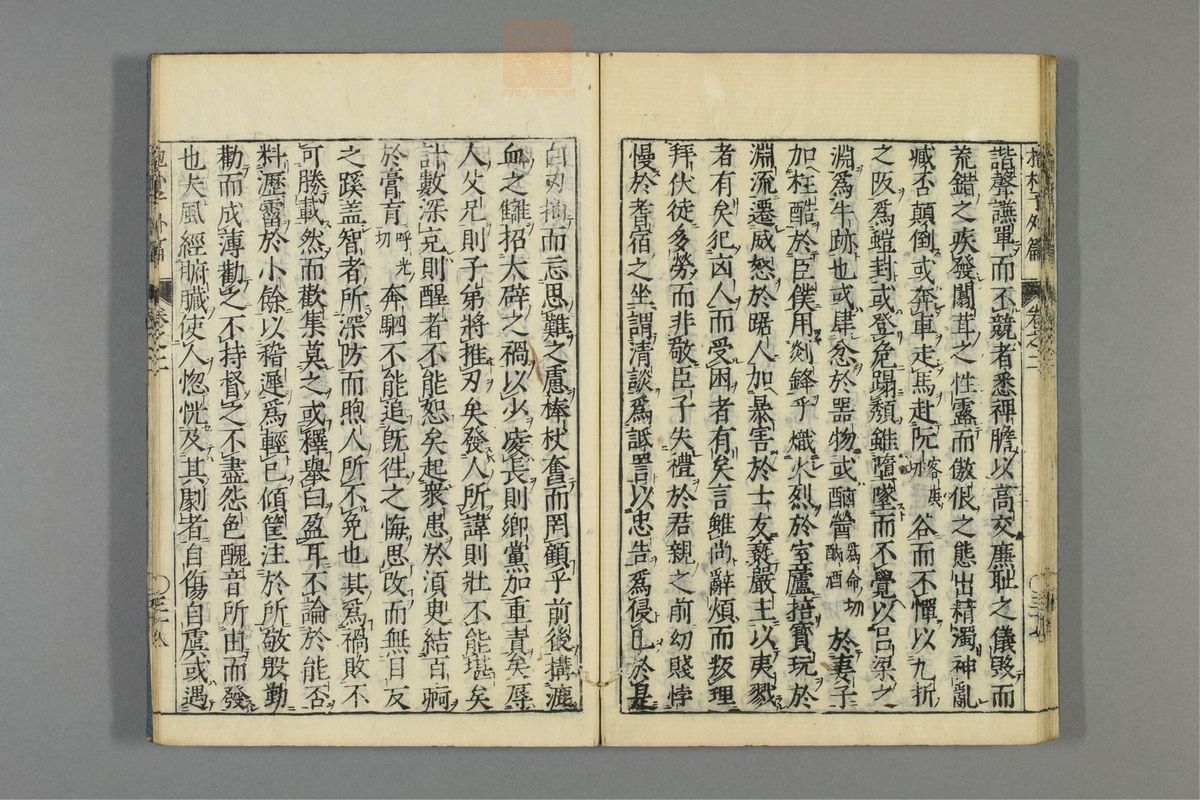 抱朴子外篇 卷之二
諧聲讌單而不競者悉禆膽以高交廉耻之儀毀而
荒錯之疾發闒茸之性露而傲佷之態出精濁神亂
臧否顛倒或奔車走馬赴阬客庚切谷而不憚以九折
之阪爲螘封或登危蹋頹雖墮墜而不覺以呂梁之
淵爲牛跡也或肆忿於器物或酗䤁爲命切酗酒於妻子
加枉酷於臣僕用剡鋒乎熾火烈於室廬掊寳玩於
淵流遷威怒於踞人加暴害於士友褻嚴主以夷戮
者有矣犯凶人而受困者有矣言雖尚辭煩而叛理
拜伏徒多勞而非敬臣子失禮於君親之前幼賤悖
慢於耆宿之坐謂清談爲詆詈以忠告爲侵已於是
白刃抽而忘思難之慮棒杖奮而罔顧乎前後搆漉
血之讎招大辟之禍以少凌長則鄉黨加重責矣辱
人父兄則子弟將推刃矣發人所諱則壯不能堪矣
計數深克則醒者不能恕矣起衆患於湏臾結百痾
於膏肓呼光切奔駟不能追旣徃之悔思改而無自反
之蹊盖智者所深防而煦人所不免也其爲禍敗不
可勝載然而歡集莫之或釋舉白盈耳不論於能否
料瀝霤於小餘以稽遲爲輕已傾筐注於所敬殷勤
勸而成薄勸之不持督之不盡怨色醜音所由而發
也夫風經腑臟使人惚恍及其劇者自傷自虞或遇